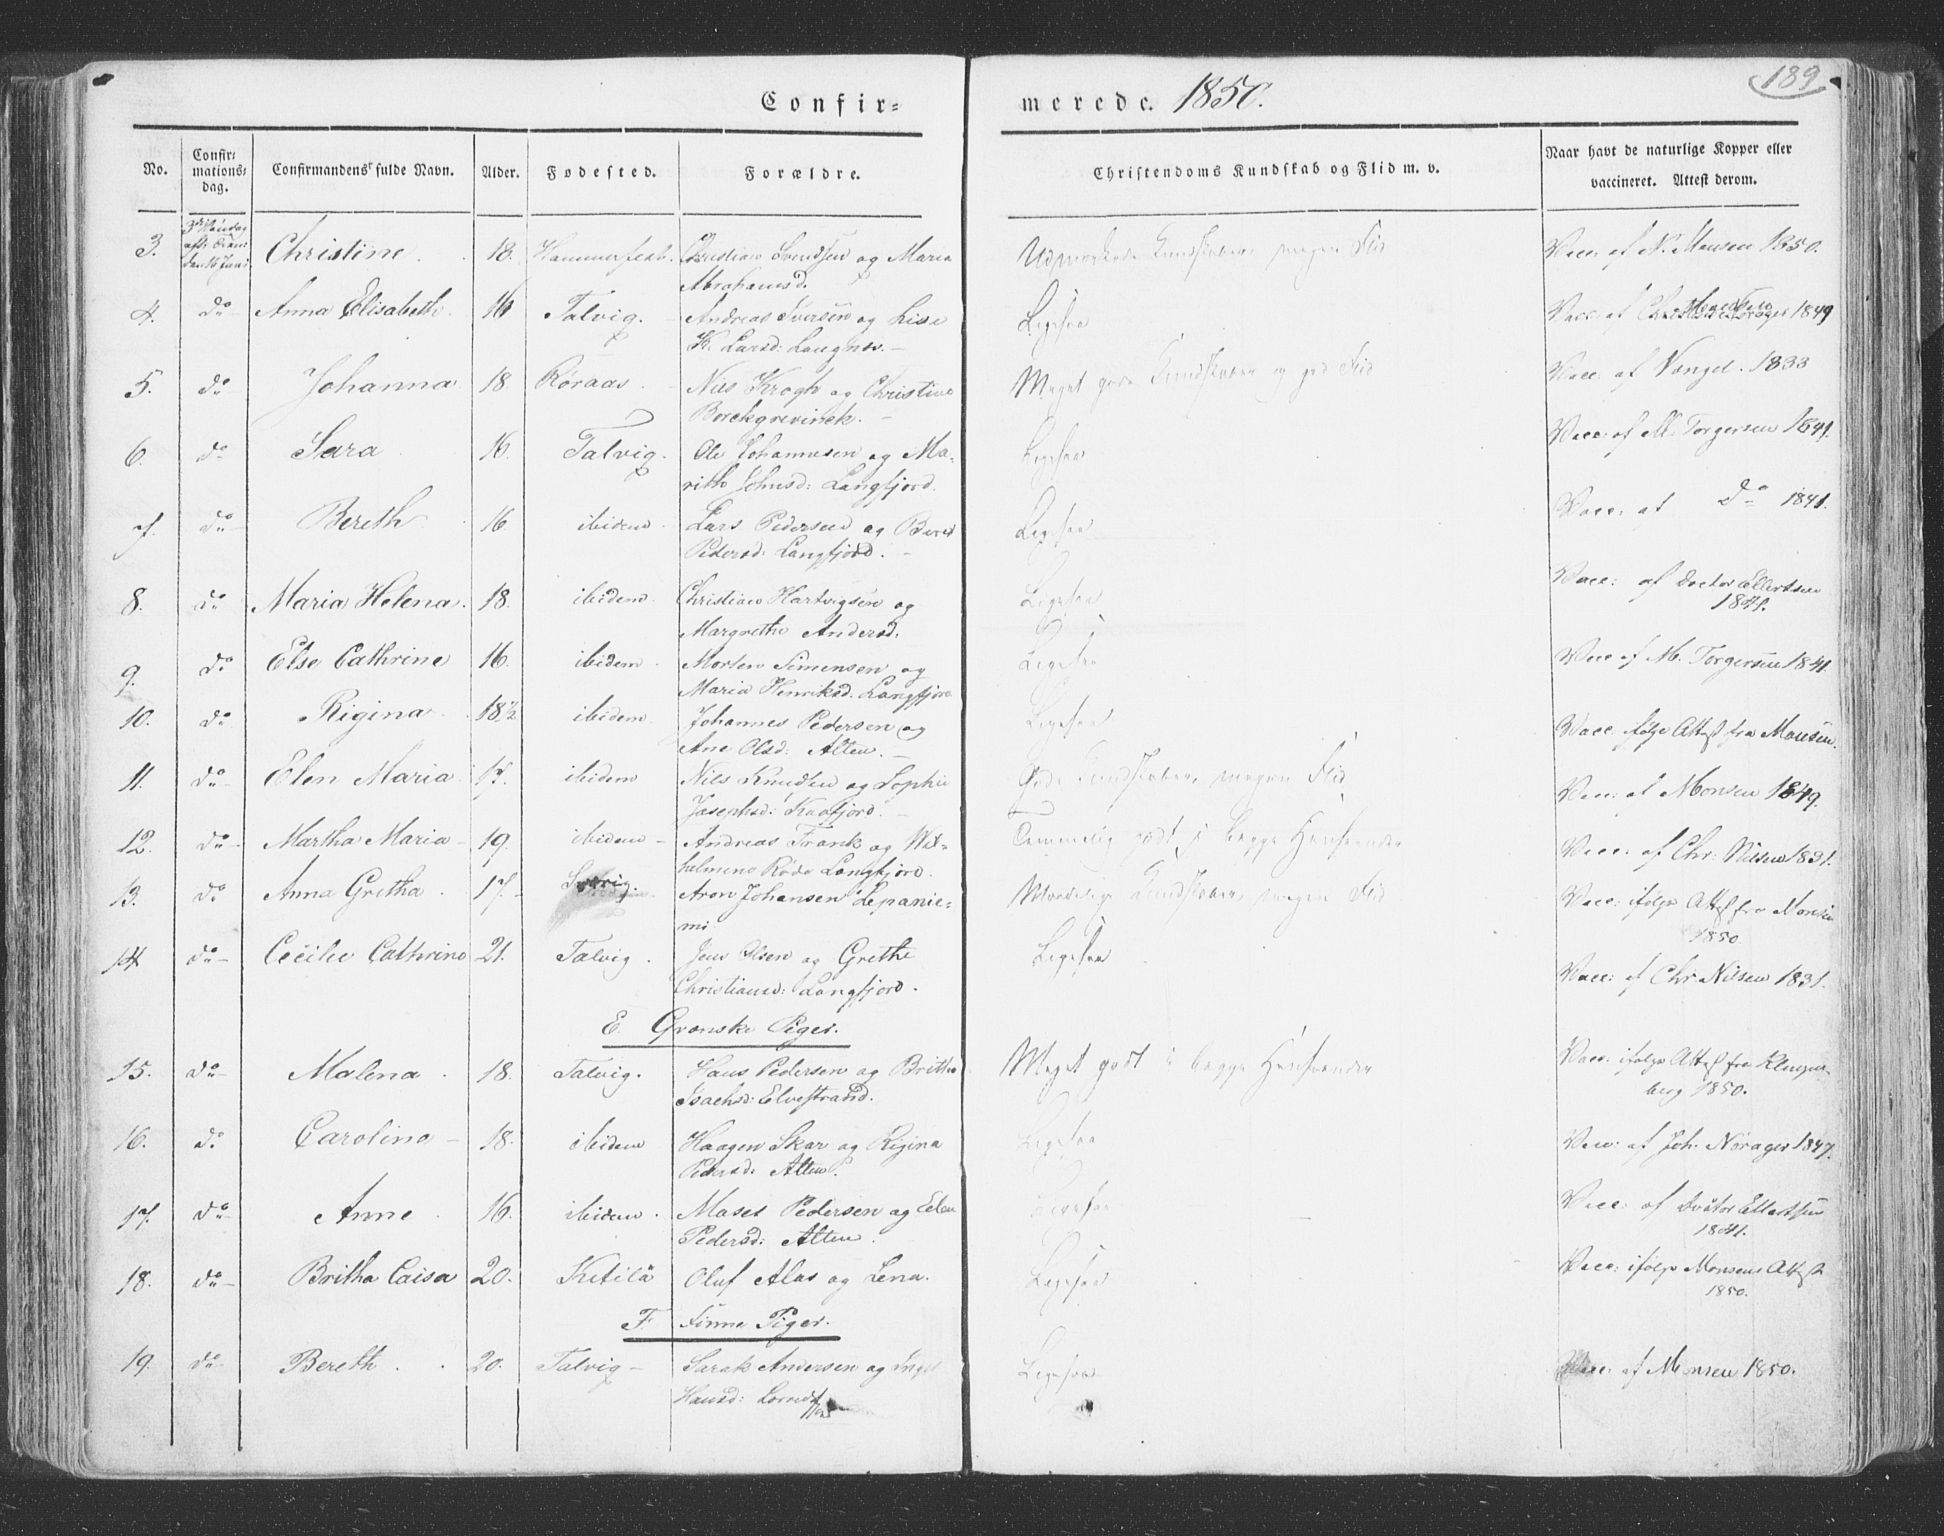 189
Confir= merede. 1850.
No. Confir= mations= dag. Confirmandens fulde Navn. Alder. Fødested. Forældre. Christendoms Kundskab og Flid m. v. Naar havt de naturlige Kopper eller vaccineret. Attest derom.
3. Christine 18. Hammerfest Christian Svendsen og Maria Kundskaber, megen Flid Vacc. af N. Monsen 1850.
Abrahamsd.
4. do Anna Elisabeth. 16 Talvig. Andreas Iversen og Lise Ligesaa Vacc. af 1849
K. Larsd:
5. do Johanna 18 Røraas Nils Krogh og Christine Meget gode Kundskaber og god Flid Vacc: af Vangel. 1833
Borchgrevinck.
6. do Sara 16. Talvig. Ole Johannesen og Ma- Ligesaa Vacc: af M. Torgersen 1841.
rith Johnsd: Langfjord.
7. do Bereth 16 ibidem Lars Pedersen og Beret Ligesaa Vacc. af Do 1841.
Pedersd: Langfjord.
8. do Maria Helena. 18. ibidem Christian Hartvigsen og Ligesaa Vacc: af Doctor Ellertsen
1841.
Margrethe Andersd.
9. do Else Cathrine 16. ibidem Morten Simensen og Ligesaa Vacc af M. Torgersen 1841
Maria Henriksd. Langfjord
10. do Rigina 18½ ibidem Johannes Pedersen og Ligesaa Vacc. ifølge Attest fra Monsen.
Ane Olsd: Alten.
11. do Elen Maria 17. ibidem Nils Knudsen og Sophie Gode Kundskaber, megen Flid Vacc: af Monsen 1849.
Josephsd: Kaafjord.
12. do Martha Maria 19. ibidem Andreas Frank og Wil= Temmelig godt i begge Henseender Vacc. af Chr: Nilsen 1831.
helmine Røde Langfjord.
13. do Anna Gretha 17. Sverig. Aron Johansen Lepanie= Kundskaber, megen Flid Vacc: ifølge Attest fra Monsen
mi 1850
14 do Cecilie Cathrine 21. Talvig. Jens Olsen og Grethe Ligesaa Vacc: af Chr Nilsen 1831.
Christiansd: Langfjord.
E. Qvænske Piger.
15. do Malena 18. Talvig. Hans Pedersen og Britha Meget godt i begge Henseender Vacc. ifølge Attest fra
berg 1850.
Isachsd: Elvestrand.
16. do Carolina 18. ibidem Haagen Skar og Rigina Ligesaa Vacc: af Joh. Norager 1847.
Pedersd: Alten.
17. do Anne 16. ibidem. Pedersen og Elen Ligesaa Vacc: af Doctor Ellertsen
1841.
Pedersd: Alten.
18. do Britha Caisa 20. Kitilä Oluf Alas og Lena. Ligesaa Vacc: ifølge Monsens Attest
1850.
F. Finne Piger.
19. do Bereth 20. Talvig Sarak Andersen og Ligesaa Vacc: af Monsen 1850.
Hansd: